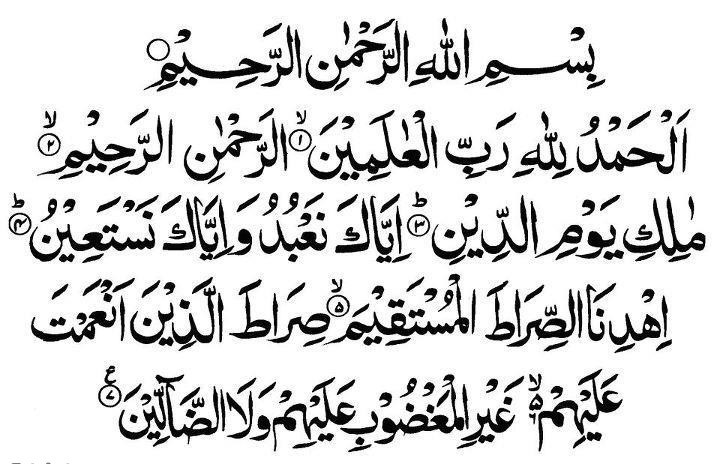 بِسْمِ اللهِ الرَّحْمٰنِ الرَّحِيْمِ ○
اَلْحَمْدُ لِلّٰهِ رَبِّ الْعٰلَمِيْنَ ۙ﴿۱﴾ الرَّحْمٰنِ الرَّحِيْمِ ۙ﴿۲﴾
مٰلِكِ يَوْمِ الدِّيْنِ ؕ﴿۳﴾ اِيَّاكَ نَعْبُدُ وَاِيَّاكَ نَسْتَعِيْنُ ؕ﴿۴﴾
اِهْدِنَا الصِّرَاطَ الْمُسْتَقِيْمَ ۙ﴿۵﴾ صِرَاطَ الَّذِيْنَ اَنْعَمْتَ
عَلَيْهِمْ ۙ﴿۶﴾ غَيْرِ الْمَغْضُوْبِ عَلَيْهِمْ وَلَا الضَّآلِّيْنَ ﴿۷﴾ ع